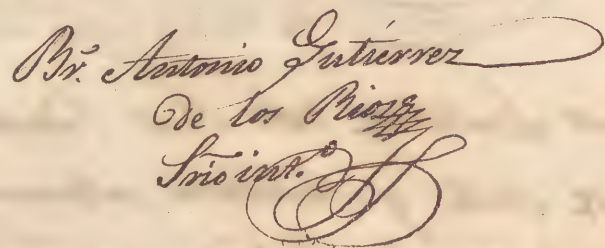 Br. Antonio Gutiérrez
de los Rios
Srio int.º